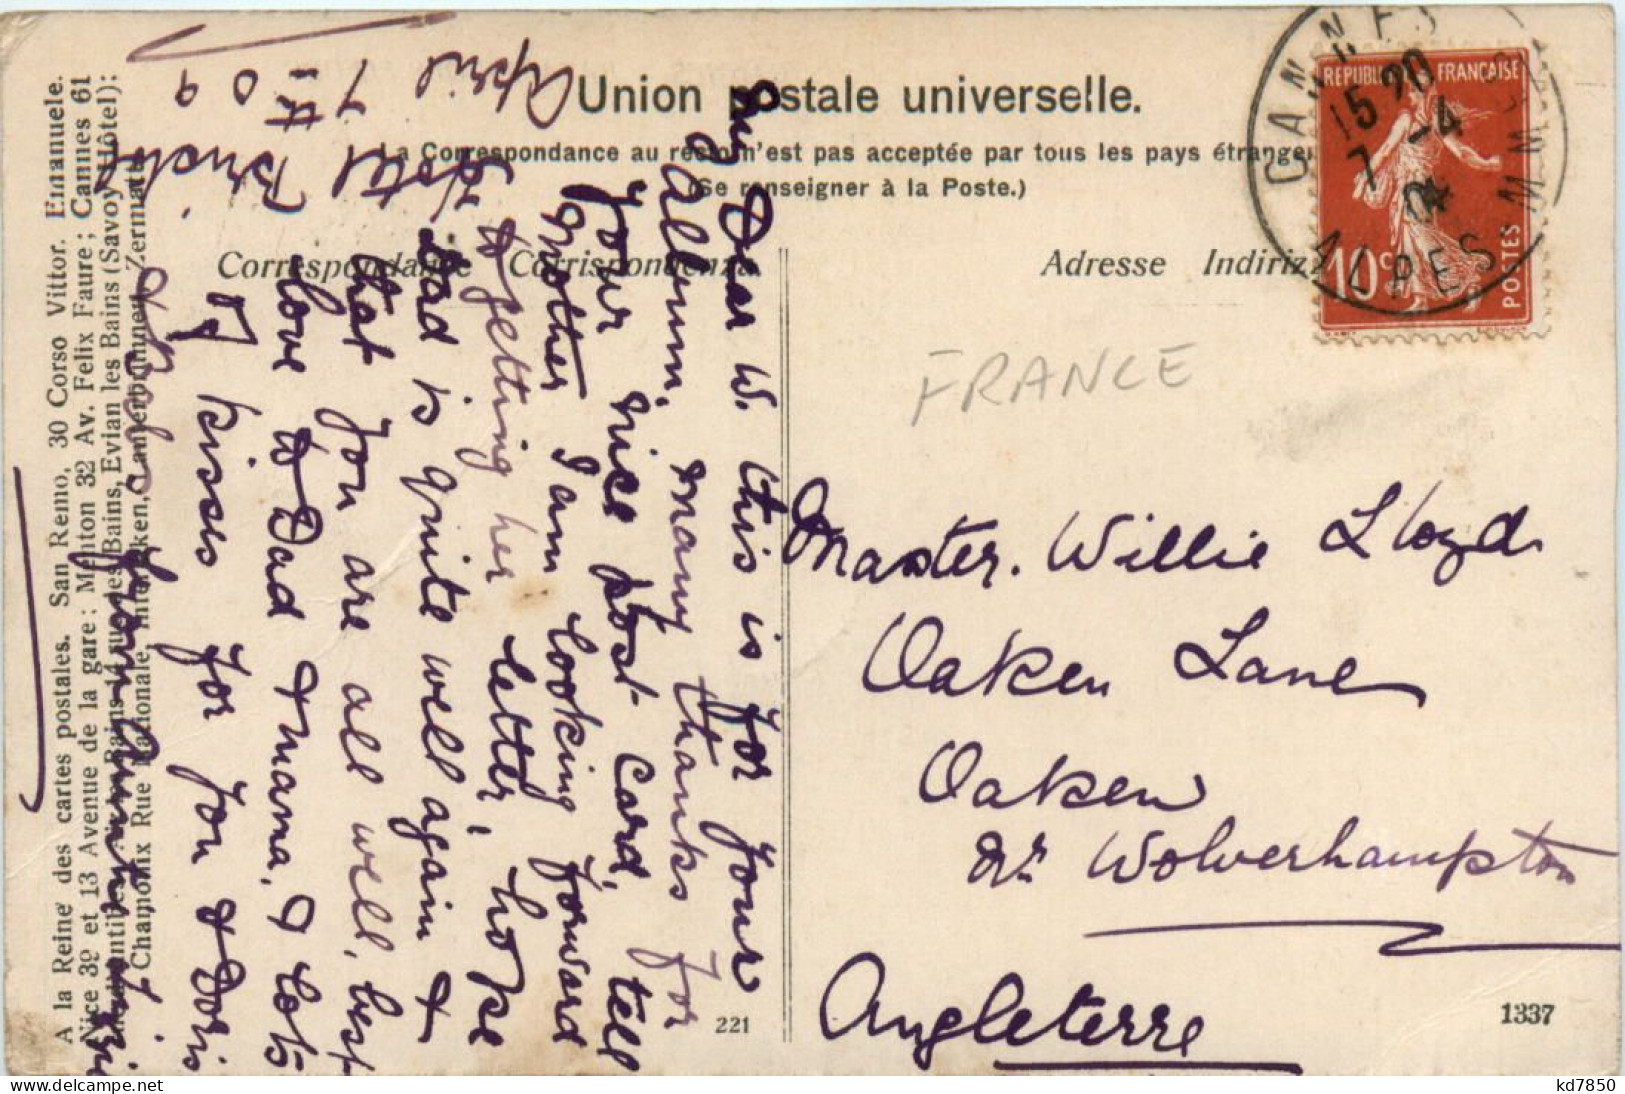 Union postale universelle.
La Correspondance au recto n'est pas acceptée par tous les pays étrange
(Se renseigner à la Poste.)
Correspondance Corrispondenza
Adresse Indiriz
REPUBL FRANÇAISE
10c
POSTES
CANNES
15 20
7 -4
ALPES
FRANCE
Master. Willie Lloyd
Oaken Lane
Oaken
Nr Wolverhampton
Angleterre
221
1337
Hotel
April 7th
09
My Dear W. this is for your
Album, many thanks for
your nice post card, tell
Mother I am looking forward
to getting her letter, hope
Dad is quite well again &
that you are all well, best
love to Dad & mama, & lots
of kisses for you & Doris
from Auntie
A la Reine des cartes postales. San Remo, 30 Corso Vittor. Emanuele.
Nice 39 et 13 Avenue de la gare; Menton 32 Av. Felix Faure; Cannes 61
Bains, Evian les Bains (Savoy Hôtel);
Chamonix Rue Nationale, Interlaken, Lauterbrunnen, Zermatt.
kd7850